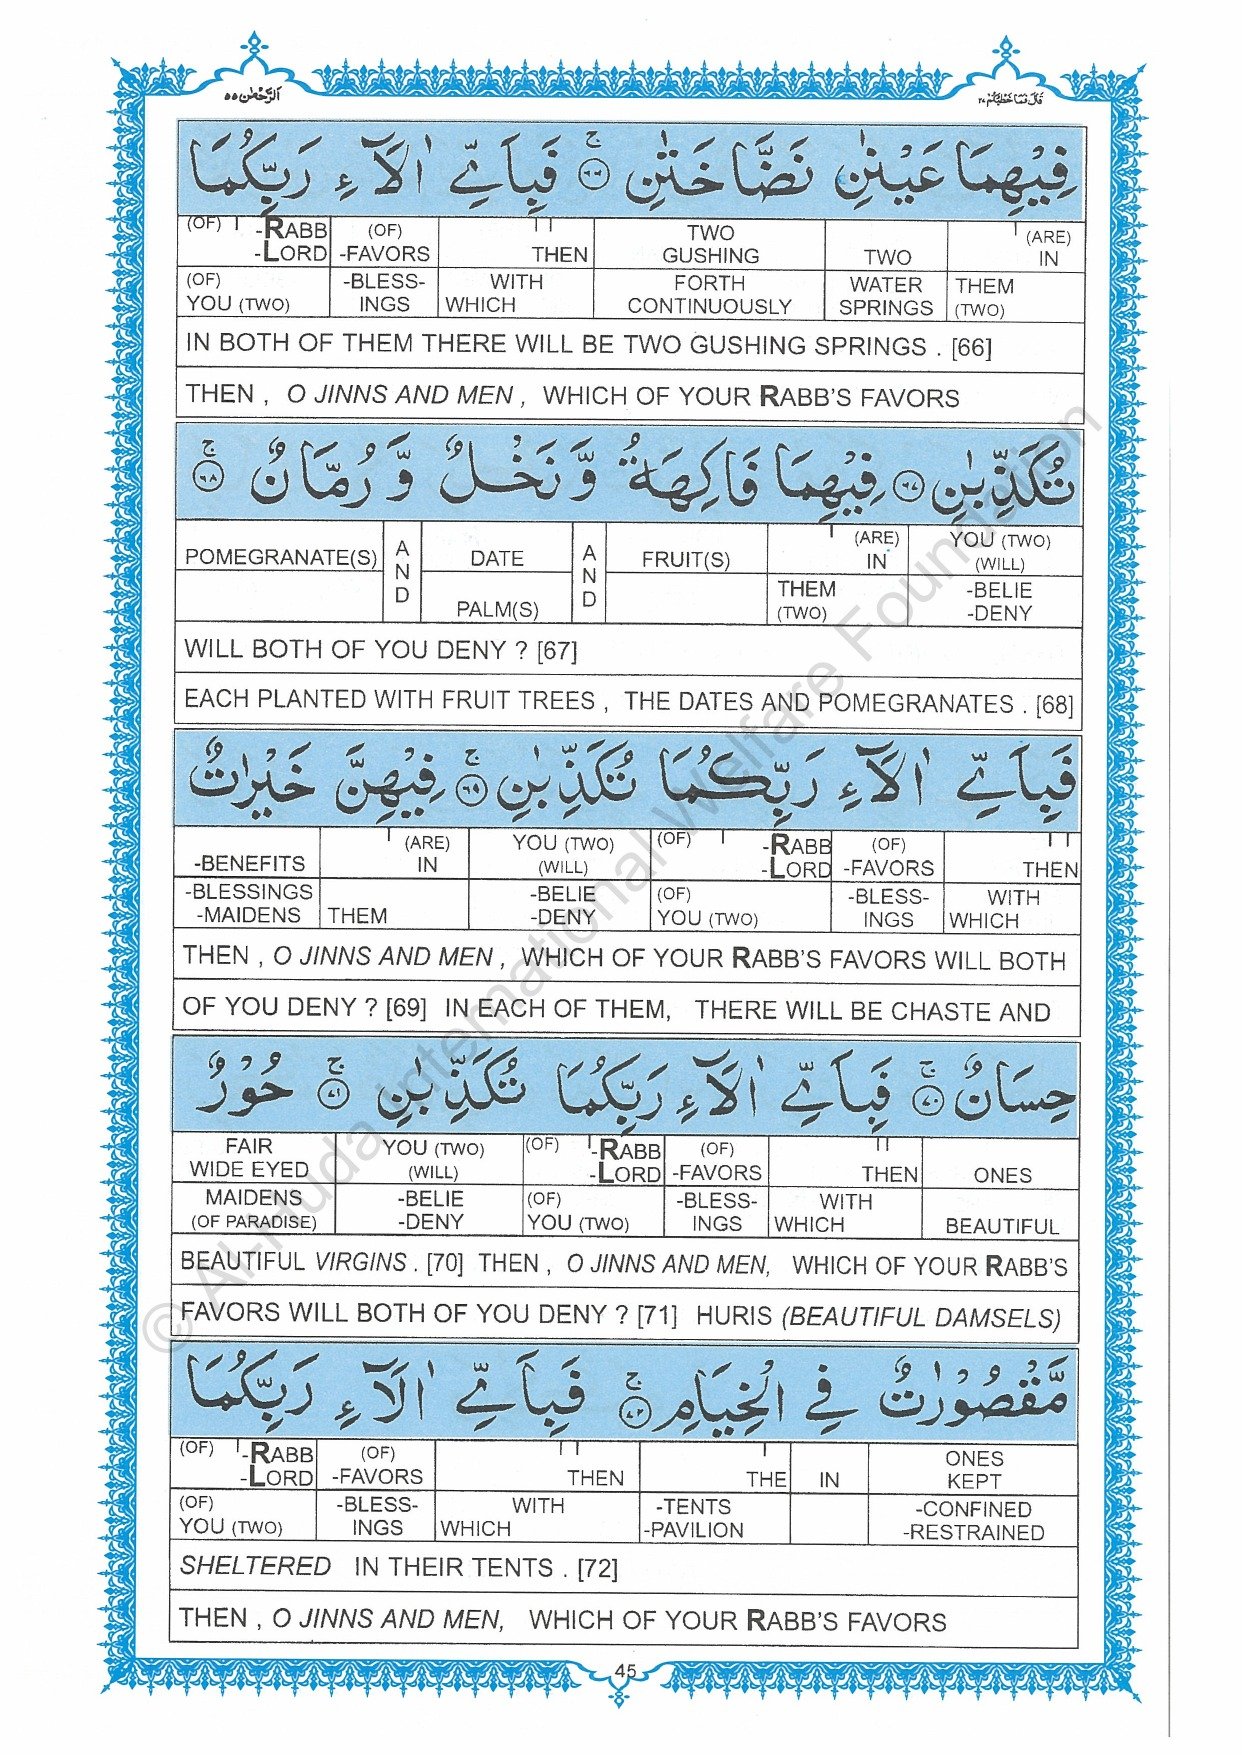 الرَّحْمٰن ٥٥
قَالَ فَمَا خَطْبُكُمْ ٢٧
فِيْهِمَا عَيْنٰنِ نَضَّاخَتٰنِ ۚ ﴿٦٦﴾ فَبِاَيِّ اٰلَآءِ رَبِّكُمَا
(OF) -RABB -LORD | (OF) -FAVORS | THEN | TWO GUSHING | TWO | (ARE) IN
(OF) YOU (TWO) | -BLESS-INGS | WITH WHICH | FORTH CONTINUOUSLY | WATER SPRINGS | THEM (TWO)
IN BOTH OF THEM THERE WILL BE TWO GUSHING SPRINGS . [66]
THEN , O JINNS AND MEN , WHICH OF YOUR RABB'S FAVORS
تُكَذِّبٰنِ ﴿٦٧﴾ فِيْهِمَا فَاكِهَةٌ وَّ نَخْلٌ وَّ رُمَّانٌ ۚ ﴿٦٨﴾
POMEGRANATE(S) | AND | DATE | AND | FRUIT(S) | (ARE) IN | YOU (TWO) (WILL)
PALM(S) | THEM (TWO) | -BELIE -DENY
WILL BOTH OF YOU DENY ? [67]
EACH PLANTED WITH FRUIT TREES , THE DATES AND POMEGRANATES . [68]
فَبِاَيِّ اٰلَآءِ رَبِّكُمَا تُكَذِّبٰنِ ۚ ﴿٦٩﴾ فِيْهِنَّ خَيْرٰتٌ
-BENEFITS | (ARE) IN | YOU (TWO) (WILL) | (OF) -RABB -LORD | (OF) -FAVORS | THEN
-BLESSINGS -MAIDENS | THEM | -BELIE -DENY | (OF) YOU (TWO) | -BLESS-INGS | WITH WHICH
THEN , O JINNS AND MEN , WHICH OF YOUR RABB'S FAVORS WILL BOTH
OF YOU DENY ? [69] IN EACH OF THEM, THERE WILL BE CHASTE AND
حِسَانٌ ۚ ﴿٧٠﴾ فَبِاَيِّ اٰلَآءِ رَبِّكُمَا تُكَذِّبٰنِ ۚ ﴿٧١﴾ حُوْرٌ
FAIR WIDE EYED | YOU (TWO) (WILL) | (OF) -RABB -LORD | (OF) -FAVORS | THEN | ONES
MAIDENS (OF PARADISE) | -BELIE -DENY | (OF) YOU (TWO) | -BLESS-INGS | WITH WHICH | BEAUTIFUL
BEAUTIFUL VIRGINS . [70] THEN , O JINNS AND MEN, WHICH OF YOUR RABB'S
FAVORS WILL BOTH OF YOU DENY ? [71] HURIS (BEAUTIFUL DAMSELS)
مَّقْصُوْرٰتٌ فِي الْخِيَامِ ۚ ﴿٧٢﴾ فَبِاَيِّ اٰلَآءِ رَبِّكُمَا
(OF) -RABB -LORD | (OF) -FAVORS | THEN | THE | IN | ONES KEPT
(OF) YOU (TWO) | -BLESS-INGS | WITH WHICH | -TENTS -PAVILION | -CONFINED -RESTRAINED
SHELTERED IN THEIR TENTS . [72]
THEN , O JINNS AND MEN, WHICH OF YOUR RABB'S FAVORS
45
© Al-Huda International Welfare Foundation